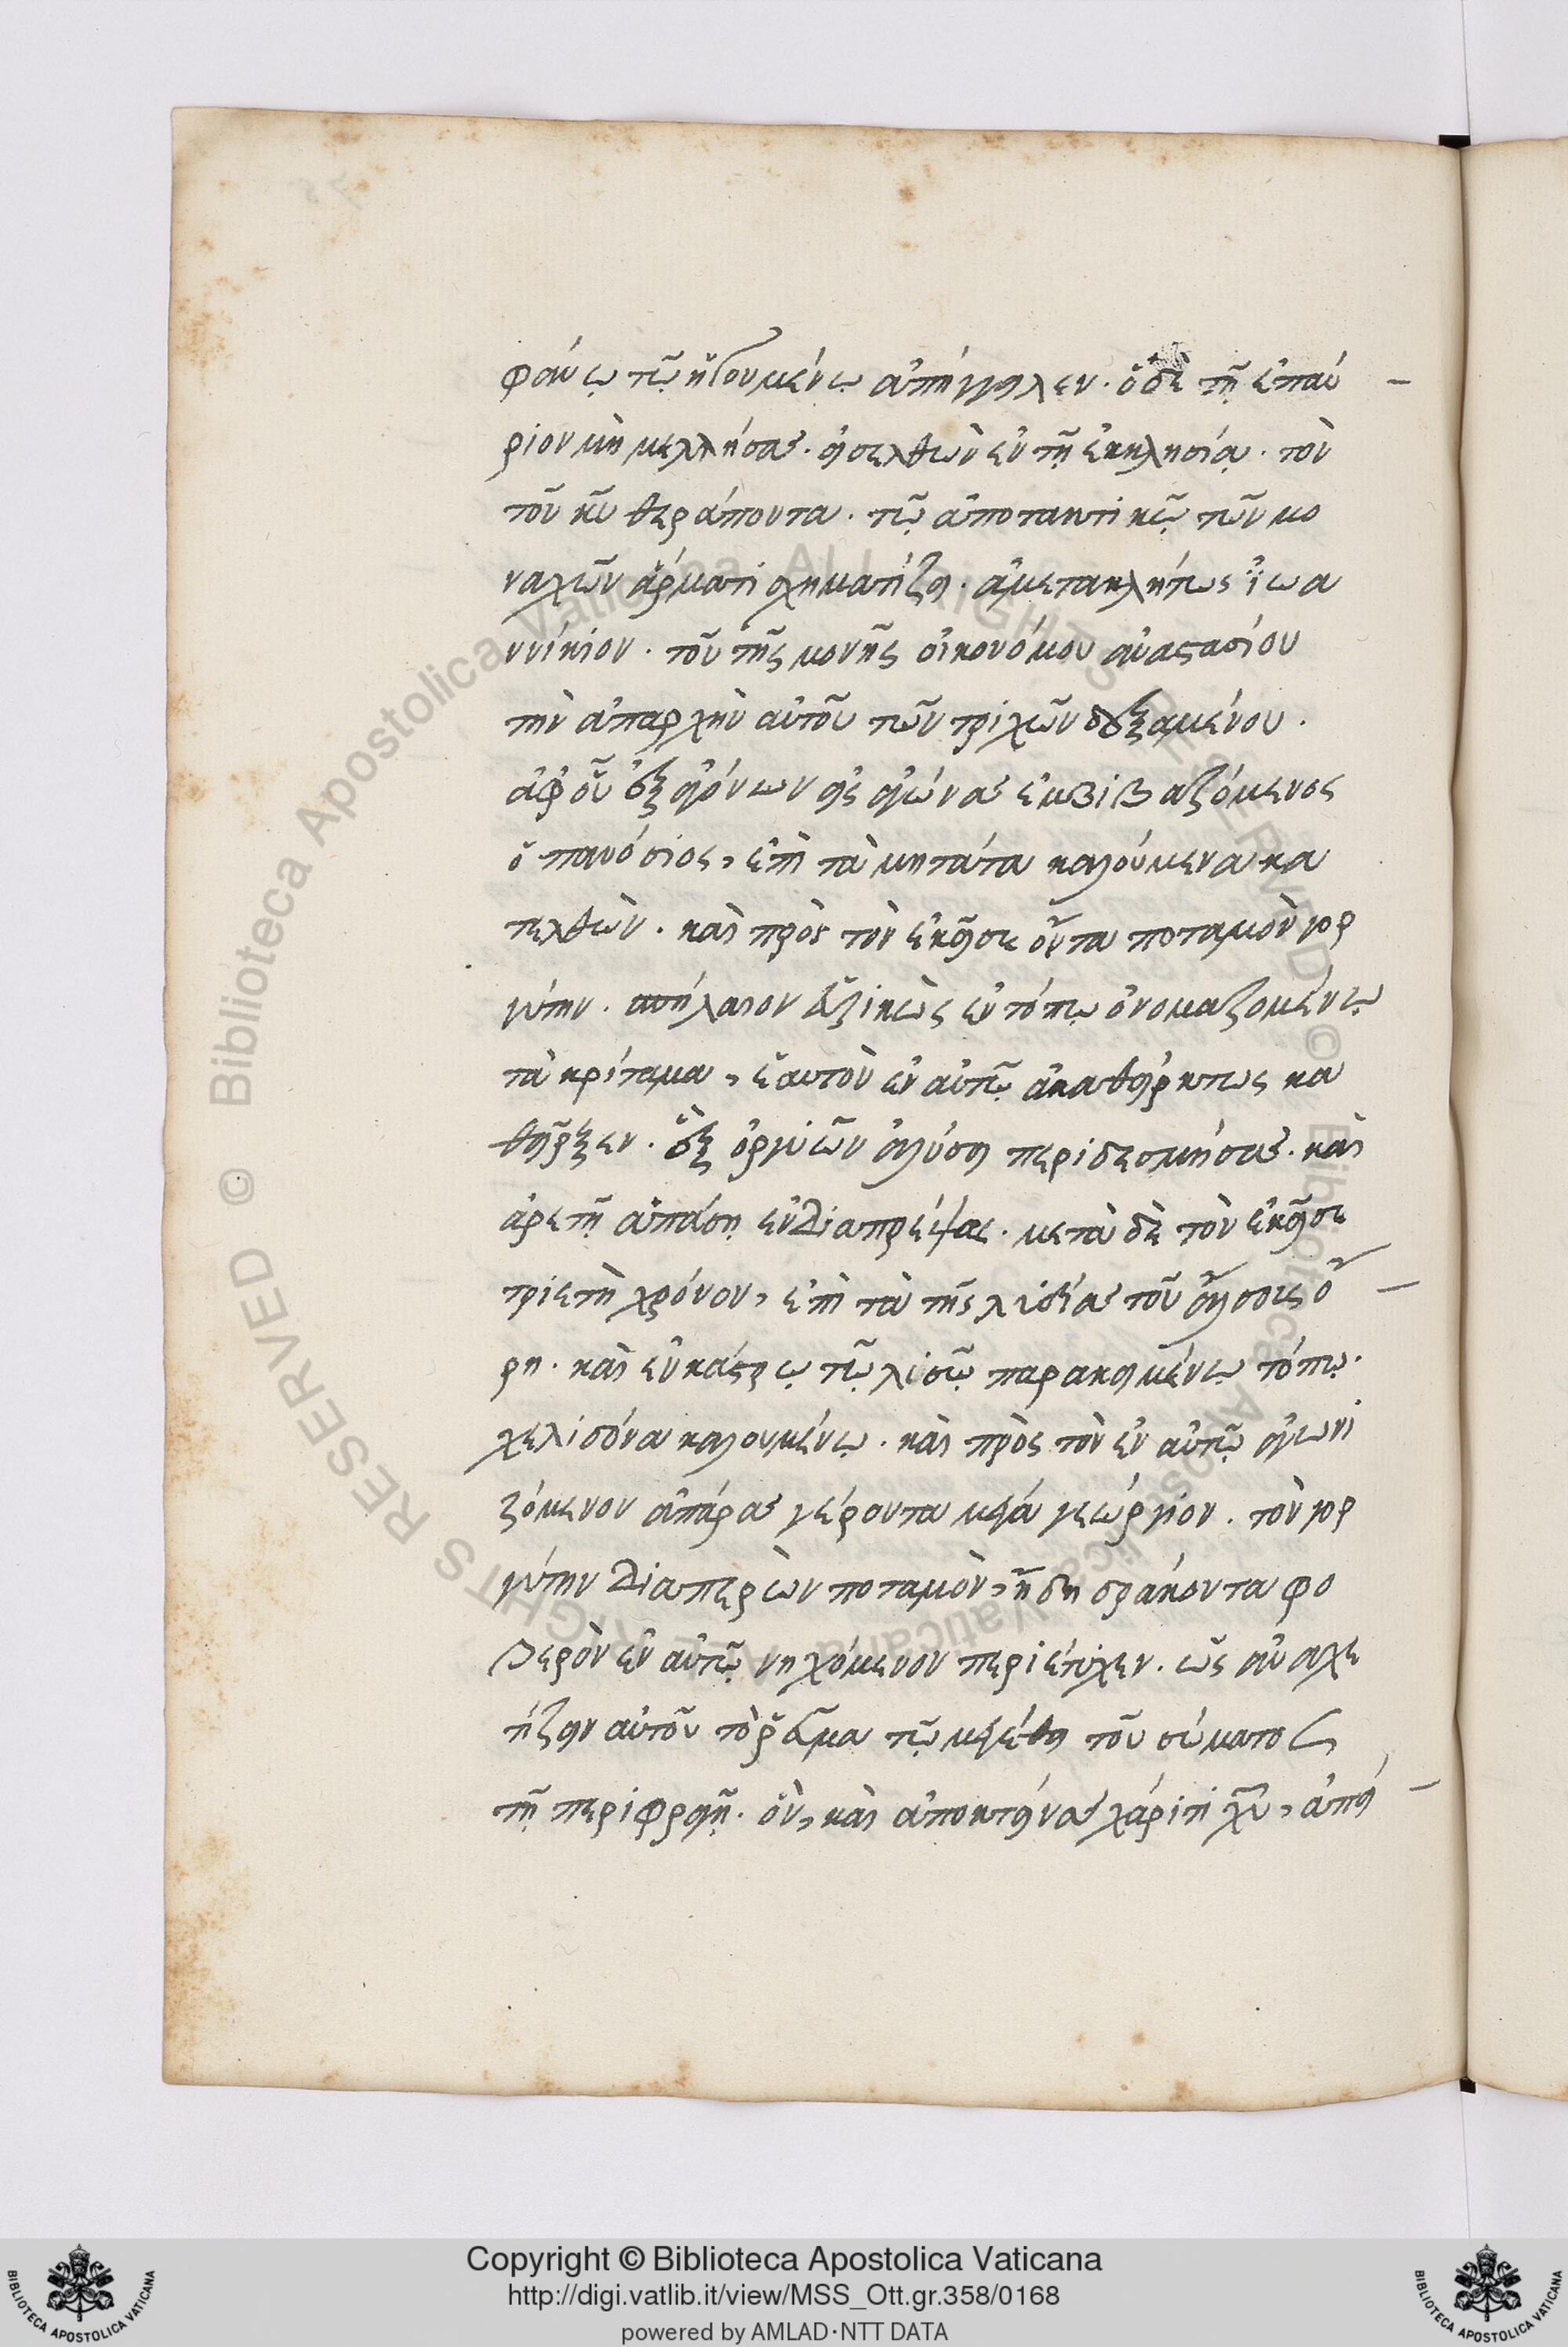 φάνῳ τῷ ἡγουμένῳ ἀπήγγειλεν· ὁ δὲ τῇ ἐπαύ
ριον μὴ μελλήσας· εἰσελθὼν ἐν τῇ ἐκκλησίᾳ· τὸν
τοῦ κυ θεράποντα· τῷ ἀποτακτικῷ τῶν μο
ναχῶν ἅρματι σχηματίζει· ἀμετακλήτως ἰωα
ννίκιον· τοῦ τῆς μονῆς οἰκονόμου ἀναστασίου
τὴν ἀπαρχὴν αὐτοῦ τῶν τριχῶν δεξαμένου·
ἀφ οὗ ἐξ ἀγώνων εἰς ἀγῶνας ἐμβιβαζόμενος
ὁ πανόσιος, ἐπὶ τὰ μητάτα καλούμενα κα
τελθὼν· καὶ πρὸς τὸν ἐκεῖσε ὄντα ποταμὸν γορ
γύτην· σπήλαιον ἐν τόπῳ ὀνομαζομένῳ
τὰ κρίταμα, ἑαυτὸν ἐν αὐτῷ ἀκαθείρκτως κα
θεῖρξεν· ἓξ ὀργυιῶν ἁλύσει περιδεσμήσας· καὶ
ἀρετῇ ἁπάσῃ ἐνδιαπρέψας· μετὰ δὲ τὸν ἐκεῖσε
τριετῆ χρόνον, ἐπὶ τὰ τῆς λυδίας τοῦ ἄλσους ὄ
ρη· καὶ ἐν κάστρῳ τῷ λισῷ παρακειμένῳ τόπῳ·
χελιδόνα καλουμένῳ· καὶ πρὸς τὸν ἐν αὐτῷ ἀγωνι
ζόμενον ἀπάρας γέροντα μέγα γεώργιον· τὸν γορ
γύτην διαπερῶν ποταμὸν, ἤδη δράκοντα φο
βερὸν ἐν αὐτῷ νηχόμενον περιέτυχεν· ὡς ἀναχε
τίζειν αὐτοῦ τὸ ῥεῦμα τῷ μεγέθει τοῦ σώματος
τῇ περιφραγῇ· ὃν, καὶ ἀποκτείνας χάριτι χυ, ἀπῄει